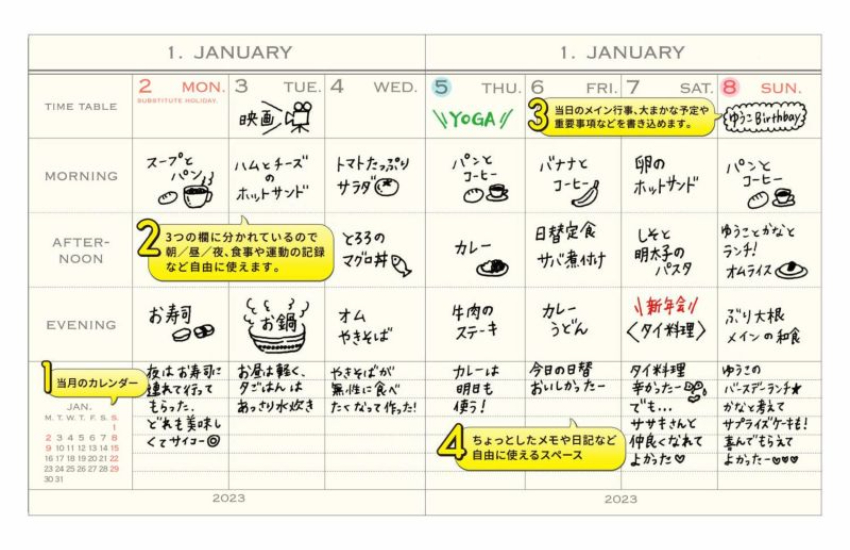 1. JANUARY
1. JANUARY
TIME TABLE
2 MON.
SUBSTITUTE HOLIDAY.
3 TUE.
4 WED.
5 THU.
6 FRI.
7 SAT.
8 SUN.
映画
YOGA
3 当日のメイン行事、大まかな予定や
重要事項などを書き込めます。
ゆうこBirthbay
MORNING
スープと
パン
ハムとチーズ
の
ホットサンド
トマトたっぷり
サラダ
パンと
コーヒー
バナナと
コーヒー
卵の
ホットサンド
パンと
コーヒー
AFTER-
NOON
2 3つの欄に分かれているので
朝/昼/夜、食事や運動の記録
など自由に使えます。
とろろの
マグロ丼
カレー
日替定食
サバ煮付け
しそと
明太子の
パスタ
ゆうことかなと
ランチ!
オムライス
EVENING
お寿司
お鍋
オム
やきそば
牛肉の
ステーキ
カレー
うどん
新年会
〈タイ料理〉
ぶり大根
メインの和食
1 当月のカレンダー
JAN.
M. T. W. T. F. S. S.
1
2 3 4 5 6 7 8
9 10 11 12 13 14 15
16 17 18 19 20 21 22
23 24 25 26 27 28 29
30 31
夜はお寿司に
連れて行って
もらった.
どれも美味し
くてサイコー◎
お昼は軽く、
夕ごはんは
あっさり水炊き
やきそばが
無性に食べ
たくなって作った!
カレーは
明日も
使う!
今日の日替
おいしかったー
タイ料理
辛かったー
でも...
ササキさんと
仲良くなれて
よかった♡
ゆうこの
バースデーランチ★
かなと考えて
サプライズケーキも!
喜んでもらえて
よかったー♡♡♡
4 ちょっとしたメモや日記など
自由に使えるスペース
2023
2023